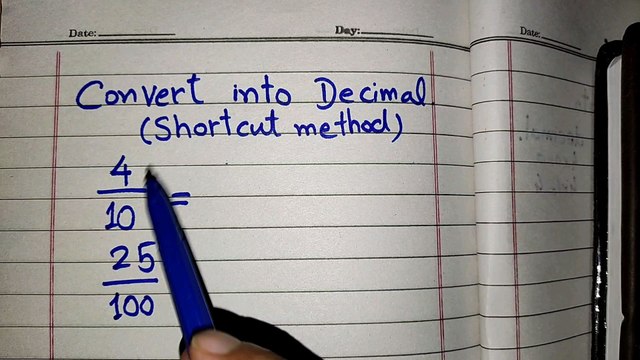 Date: Day: Date:
Convert into Decimal
(Shortcut method)
4
10
=
25
100